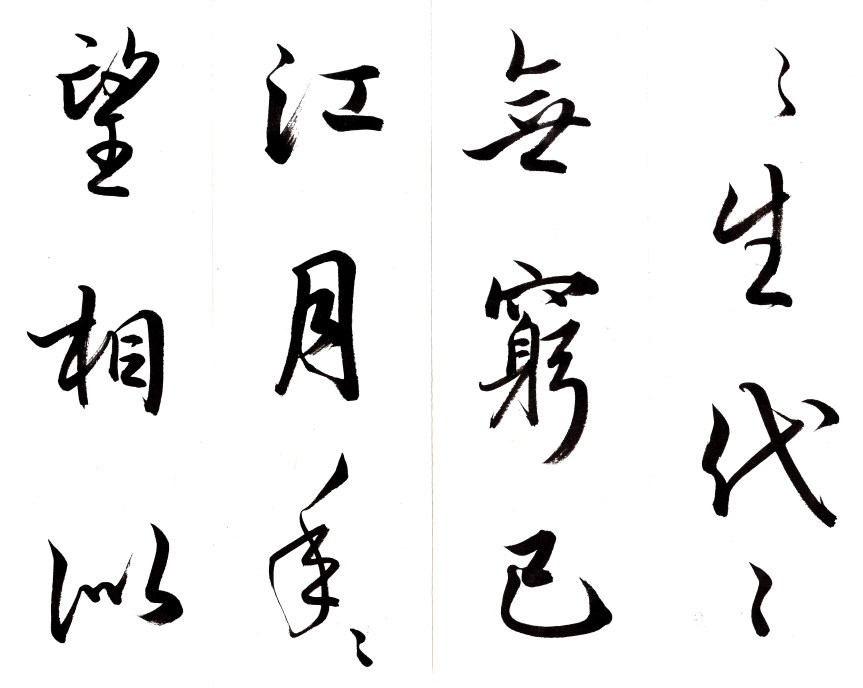 々生代々
無窮已
江月年々
望相似